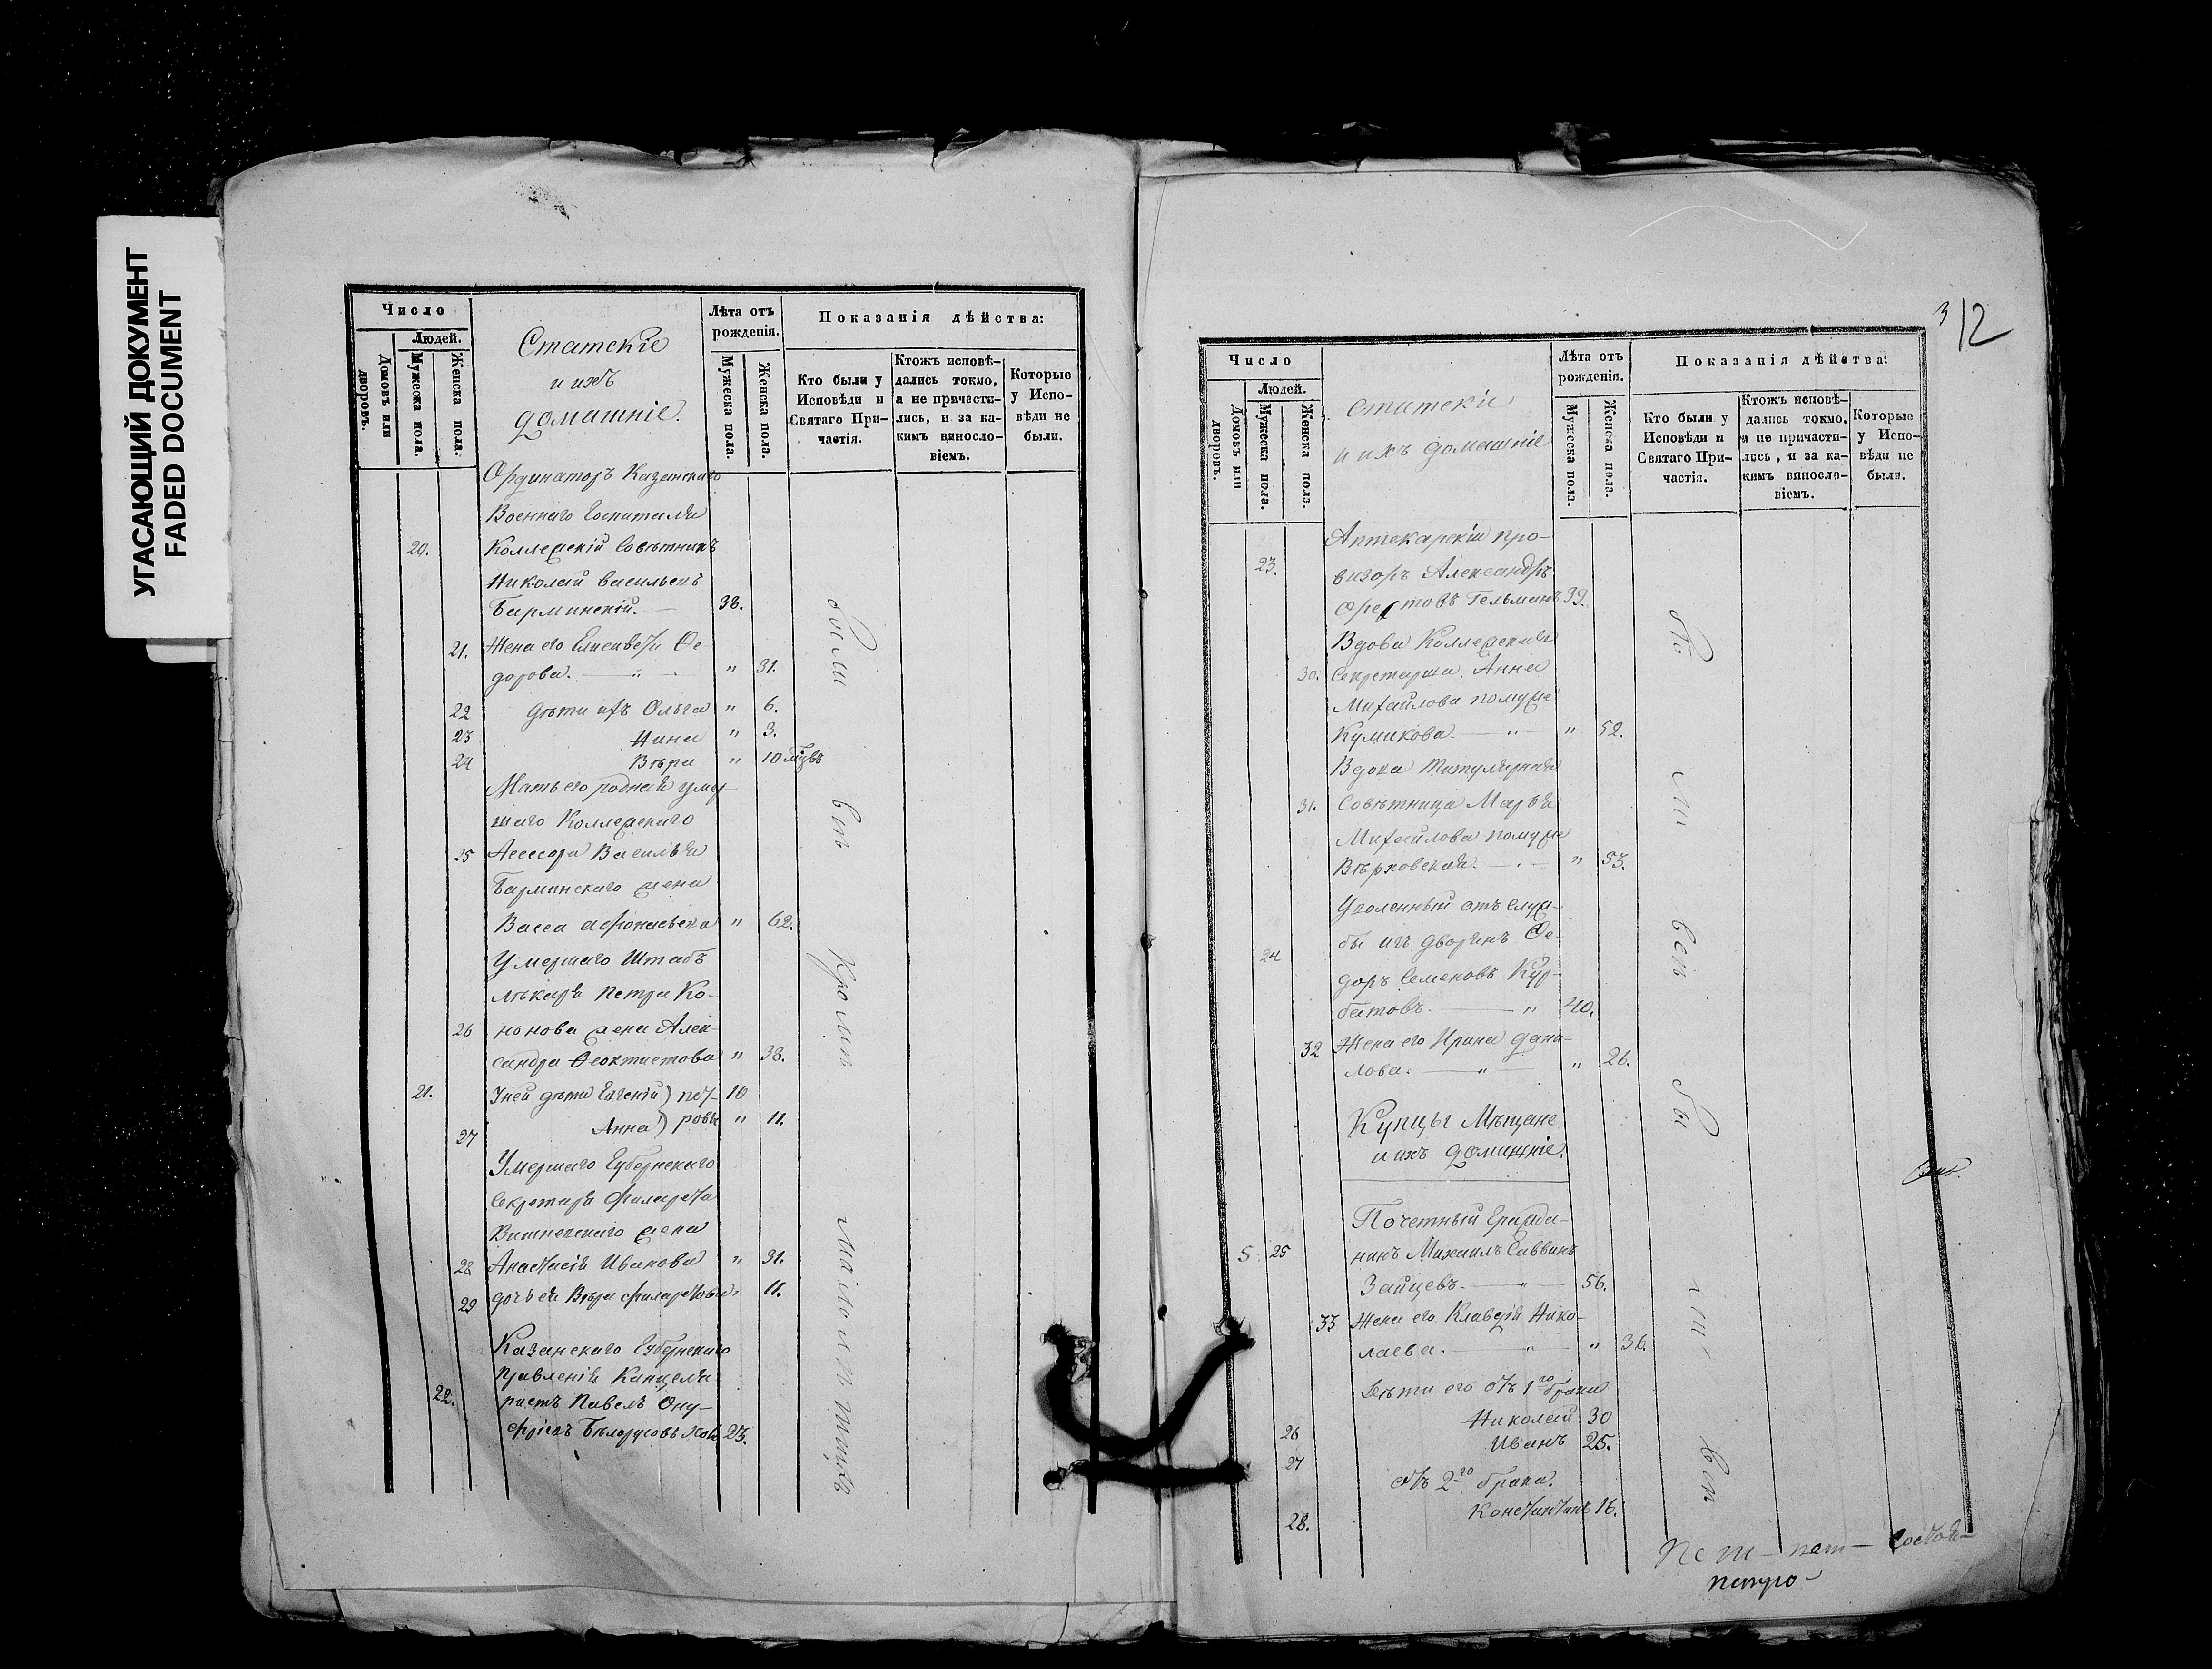 УГАСАЮЩИЙ ДОКУМЕНТ
FADED DOCUMENT
Число
Людей.
Домовъ или дворовъ.
Мужеска пола.
Женска пола.
Статскіе
и ихъ
домашніе.
Лѣта отъ
рожденія.
Мужеска пола.
Женска пола.
Показанія дѣйства:
Кто были у
Исповѣди и
Святаго При-
частія.
Ктожъ исповѣ-
дались токмо,
а не причасти-
лись, и за ка-
кимъ винosло-
віемъ.
Которые
у Испо-
вѣди не
были.
Ординаторъ Казанскаго
Военнаго Госпиталя
20. Коллежскій Совѣтникъ
Николай Васильевъ
Барминскій. — 38.
21. Жена его Елисавета Ѳе
дорова. — " — " 31.
22 Дѣти ихъ Ольга " 6.
23 Нина " 3.
24 Вѣра " 10 мѣс
Мать его родная умер
шаго Коллежскаго
25 Ассесора Василья
Барминскаго жена
Васса Афонасьева " 62.
Умершаго Штабъ
лѣкаря Петра Ко-
26 нонова жена Алек-
сандра Ѳеоктистова " 38.
21. У ней дѣти Евгеній) пет- 10
27 Анна) ровы " 11.
Умершаго Губернскаго
Секретаря Филарета
Вишневскаго жена
28 Анастасія Иванова " 31.
29 дочь ея Вѣра Филаретова " 11.
Казанскаго Губернскаго
Правленія Канцеля
22. ристъ Павелъ Ону-
фріевъ 23.
были
всѣ
кромѣ
малолѣтнихъ
3
12
Число
Людей.
Домовъ или дворовъ.
Мужеска пола.
Женска пола.
статскіе
и ихъ домашніе
Лѣта отъ
рожденія.
Мужеска пола.
Женска пола.
Показанія дѣйства:
Кто были у
Исповѣди и
Святаго При-
частія.
Ктожъ исповѣ-
дались токмо,
а не причасти-
лись, и за ка-
кимъ винosло-
віемъ.
Которые
у Испо-
вѣди не
были.
Аптекарскій про-
23. визоръ Александръ
Орестовъ Гельманъ 39.
Вдова Коллежская
30. Секретарша Анна
Михайлова по мужѣ
Куликова. — " — " 52.
Вдова Титулярная
31. Совѣтница Марья
Михайлова по мужѣ
Вѣрховская. — " 53.
Уволенный отъ служ-
24 бы изъ дворянъ Ѳе-
доръ Семеновъ Кур-
батовъ. — " 40.
32 Жена его Ирина Дани-
лова. — " — " 26.
Купцы Мѣщане
и ихъ домашніе.
Почетный Гражда-
5 25 нинъ Михаилъ Саввинъ
Зайцевъ. — " — 56.
33 Жена его Клавдія Нико-
лаева. — " — " 36.
Дѣти его отъ 1го брака
26 Николай 30
27 Иванъ 25.
отъ 2го брака.
28. Константинъ 16.
бы
ли
всѣ